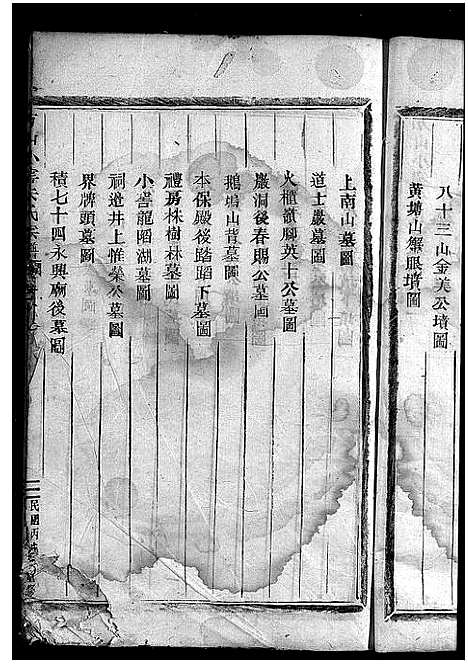 八十三山金美公墳圖
黃塘山蟹眼墳圖
上南山墓圖
道士巖墓圖
火櫃嶺腳英十公墓圖
巖洞後春賜公墓圖
鵝塢山背墓圖
本保殿後蹈蹈下墓圖
禮房林樹林墓圖
小巖龍陷湖墓圖
祠邉井上惟榮公墓圖
界牌頭墓圖
積七十四永興廟後墓圖
民國丙